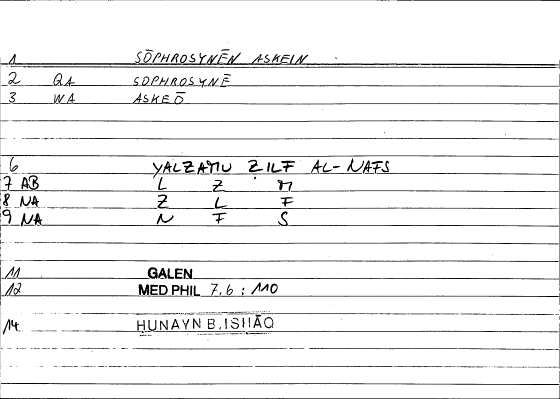 1 SŌPHROSYNĒN ASKEIN
2 QA SŌPHROSYNĒ
3 WA ASKEŌ
6 YALZAMU ẒILF AL-NAFS
7 AB L Z M
8 NA Ẓ L F
9 NA N F S
11 GALEN
12 MED PHIL 7.6 : 110
14 ḤUNAYN B. ISḤĀQ